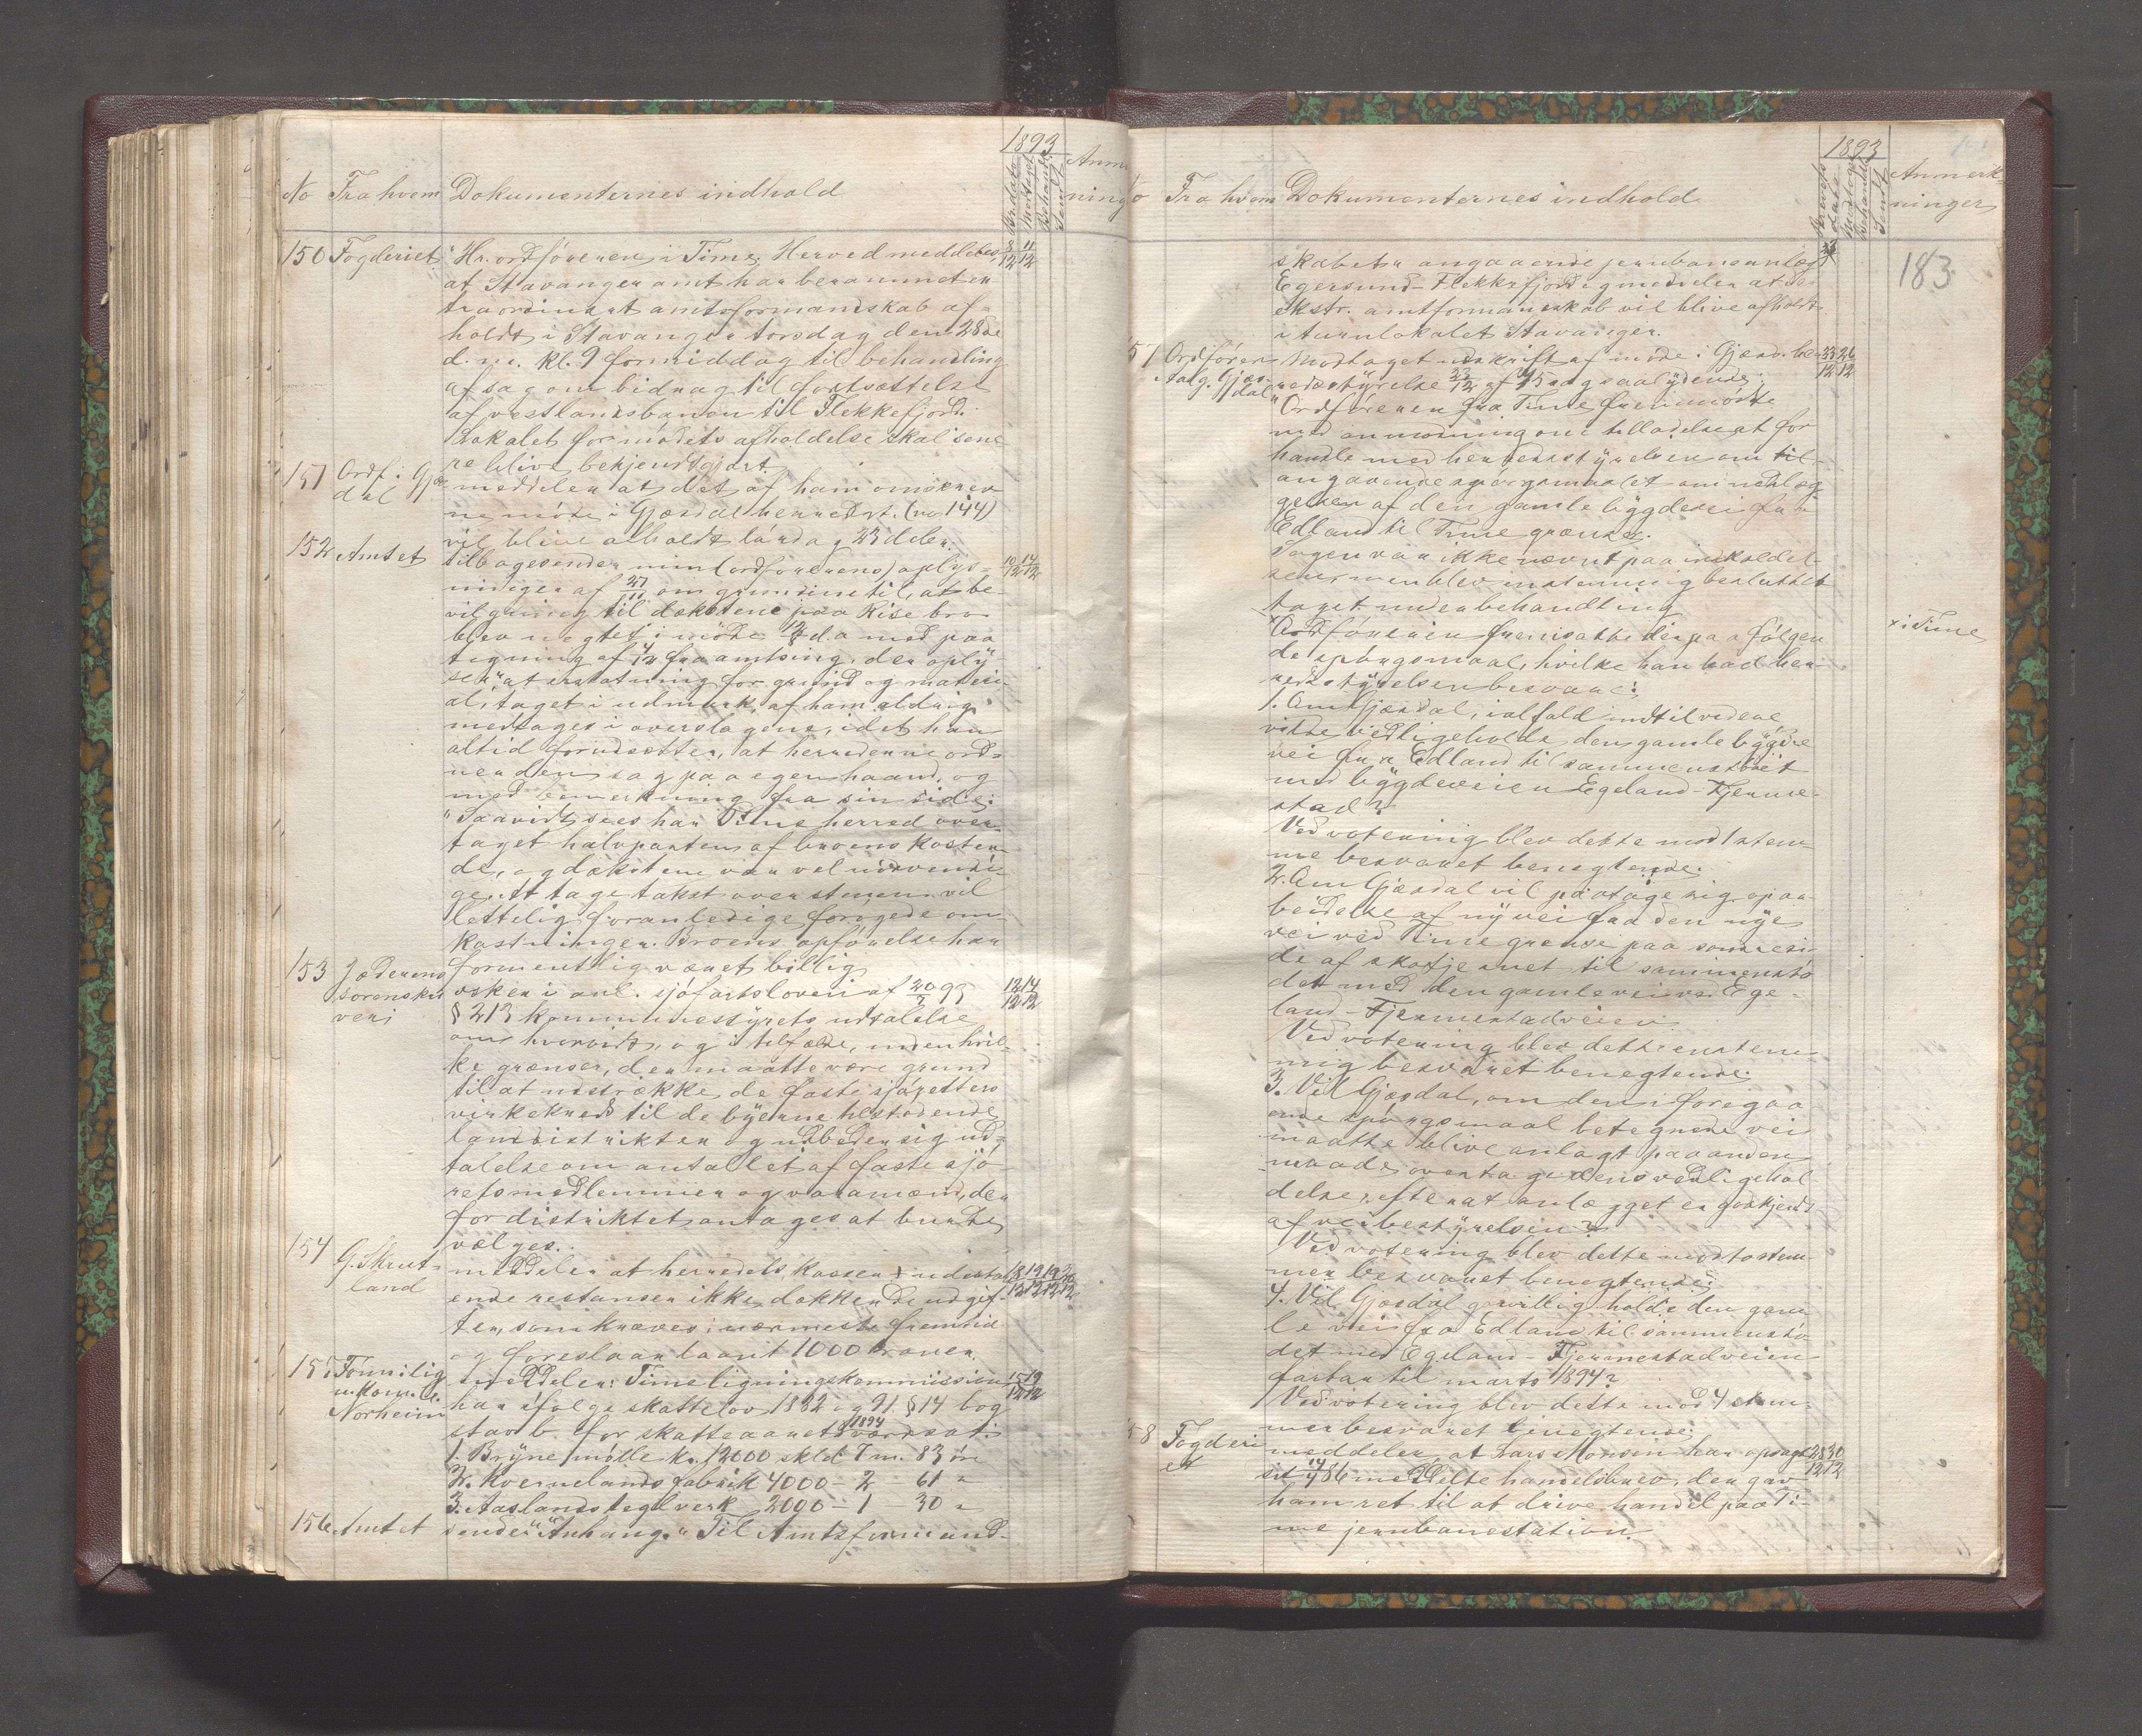 1893
No Fra hvem Dokumenternes indhold
Br. dato
Modtaget
Behandl.
Sendt
150 Fogderiet "Hr. ordföreren i Time. Herved meddeles 8/12 11/12
at Stavanger amt har berammet ex-
traordinært amtsformandskab af-
holdt i Stavanger torsdag den 28de
d.m. kl. 9 formiddag til behandling
af sag om bidrag til fortsættelse
af vestlandsbanen til Flekkefjord.
Lokalet for mödets afholdelse skal sene-
re blive bekjendtgjort.
151 Ordf. i Gjæs- meddeler at det af ham omskrev-
dal ne möde i Gjæsdal herredst. (no 144)
vil blive afholdt lördag 23 dsm.
152 Amtet tilbagesender min (ordförerens) oplys- 10/12 14/12
ninger af 27/11 om grunnene til, at be-
vilgning til dæksten paa Kise bro
blev negtet i möde d.a med paa
tegning af 4/12 fra amtsing. der oply
ser at erstatning for grund og materi-
al, taget i udmark, af ham aldrig
medtages i overslagene, idet han
altid forudsætter, at herrederne ord-
ner den sag paa egen haand, og
med bemerkning fra sin side:
"Saavidt sees har Time herred over-
taget halvparten af broens kosten-
de, og dæksten var vel nödvendi-
ge. At tage takst over stenen vil
lettelig foranledige forögede om-
kostninger. Broens opförelse har
formentlig været billig
153 Jæderens önsker i anl. sjöfartsloven af 20/7 93 12/12 14/12
sorenskri § 213 kommunestyrets udtalelse
veri om hvorvidt, og i tilfælde, inden hvil-
ke grænser, der maatte være grund
til at udstrække de faste sjöretters
virkekreds til de byerne tilstødende
landdistrikter og udbeder sig ud-
talelse om antallet af faste sjö
retsmedlemmer og varamænd, der
for distriktet antages at burde
vælges.
154 G. Skret- meddeler at herredets kassen + udestaa 18/12 19/12 19/12 20/12
land ende restanser ikke dækker de udgif-
ter, som kræves i nærmeste fremtid
og foreslaar laant 1000 kroner.
155 Formilig meddeler: Time ligningskommission 15/12 19/12
n. kom. v. har ifölge skattelov 1882 og 91. § 14 bog
Norheim stav b. for skatteaaret 1894 værdsat:
1. Bryne mölle kr. 12000 skld 7 m. 83 öre
2. Kvernelands fabrik 4000 - 2 61 "
3. Aaslands teglverk 2000 - 1 30 "
156 Amtet sender "Anhang" Til Amtsformand-
1893
Fra hvem Dokumenternes indhold
Brevets
dato
Modtaget
Behandlet
Sendt
Anmærk-
ninger
183
skabet angaaende jernbaneanlæg
Egersund-Flekkefjord og meddeler at de
ekstr. amtformanskab vil blive afholdt
i turnlokalet Stavanger.
57 Ordföreren Modtaget udskrift af möde i Gjæsd. her- 23/12 26/12
Aalg. Gjæs- redsstyrelse 23/12 af 15 sag saalydende:
dal "Ordföreren fra Time fremmödte
med anmodning om tilladelse at for
handle med herredsstyrelsen om til
angaaende spörgsmaalet om nedlæg-
gelsen af den gamle bygdevei fra
Edland til Time grænse.
Sagen var ikke nævnt paa indkaldel-
sen, men blev enstemmig besluttet
taget under behandling
xOrdföreren fremsatte derpaa fölgen x i Time
de spörgsmaal, hvilke han bad her-
redsstyrelsen besvare:
1. Om Gjæsdal, ialfald indtil videre,
vilde vedligeholde den gamle bygde
vei fra Edland til sammenstödet
med bygdeveien Egeland-Fjerme-
stad?
Ved votering blev dette mod 1 stem-
me besvaret benegtende.
2. Om Gjæsdal vil paatage sig opar-
beidelse af ny vei fra den nye
vei ved Time grense paa somresi
de af skotjernet til sammenstö
det med den gamle vei ved Ege-
land-Fjermestadveien
Ved votering blev dette enstem-
mig besvaret benegtende.
3. Vil Gjæsdal, om den i foregaa
ende spörgsmaal betegnede vei
maatte blive anlagt paa anden
maade, overtage dens vedligehol
delse, efter at anlægget er godkjendt
af veibestyrelsen?
Ved votering blev dette mod to stem-
mer besvaret benegtende.
4. Vil Gjæsdal godvillig holde den gam
le vei fra Edland til sammenstö
det med Egeland-Fjermestadveien
farbar til marts 1894?
Ved votering blev dette mod 4 stem-
mer besvaret benegtende.
58 Fogderi meddeler, at Lars Monsen har opsagt 28/12 30/12
et sit 86 meddelte handelsbrev, der gav
ham ret til at drive handel paa Ti-
me jernbanestation.